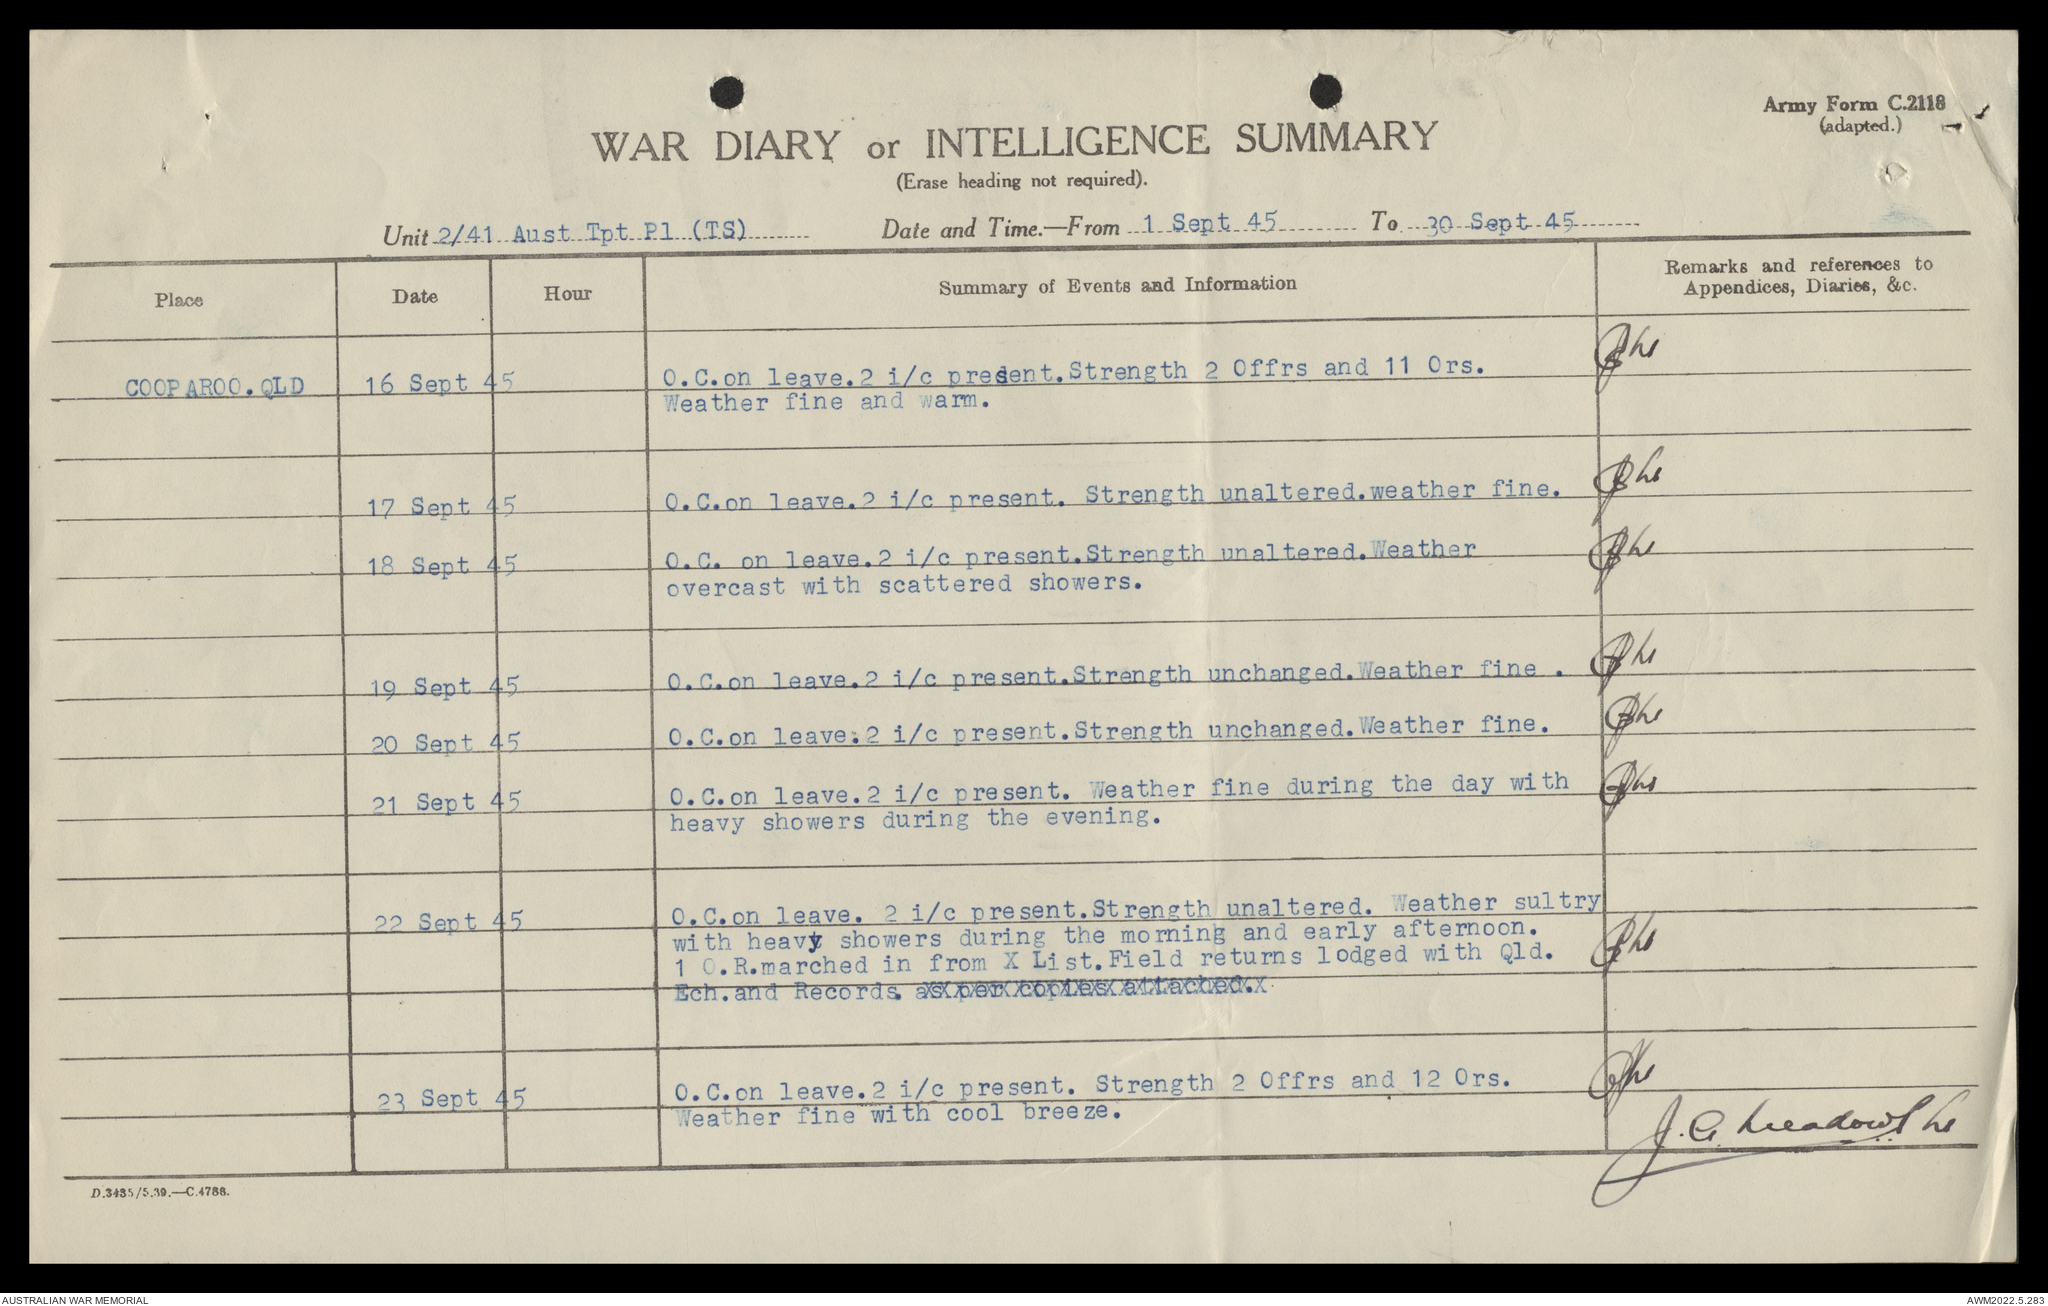 Army Form C.2118
(adapted.)
WAR DIARY or INTELLIGENCE SUMMARY
(Erase heading not required).
Unit 2/41 Aust Tpt Pl (TS) Date and Time.—From 1 Sept 45 To 30 Sept 45
Place Date Hour Summary of Events and Information Remarks and references to
Appendices, Diaries, &c.
COOPAROO.QLD 16 Sept 45 O.C.on leave.2 i/c present.Strength 2 Offrs and 11 Ors.
Weather fine and warm.
17 Sept 45 O.C.on leave.2 i/c present. Strength unaltered.weather fine.
18 Sept 45 O.C. on leave.2 i/c present.Strength unaltered.Weather
overcast with scattered showers.
19 Sept 45 O.C.on leave.2 i/c present.Strength unchanged.Weather fine .
20 Sept 45 O.C.on leave.2 i/c present.Strength unchanged.Weather fine.
21 Sept 45 O.C.on leave.2 i/c present. Weather fine during the day with
heavy showers during the evening.
22 Sept 45 O.C.on leave. 2 i/c present.Strength unaltered. Weather sultry
with heavy showers during the morning and early afternoon.
1 O.R.marched in from X List.Field returns lodged with Qld.
Ech.and Records. as per copies attached.
23 Sept 45 O.C.on leave.2 i/c present. Strength 2 Offrs and 12 Ors.
Weather fine with cool breeze.
J. G. Meadows Lt
D.3435/5.39.—C.4788.
AUSTRALIAN WAR MEMORIAL AWM2022.5.283